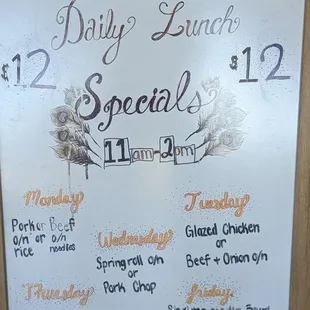 Daily Lunch
$12 $12
Specials
11am-2pm
Monday
Pork or Beef
o/n or o/n
rice noodles
Wednesday
Springroll o/n
or
Pork Chop
Tuesday
Glazed Chicken
or
Beef + Onion o/n
Thursday
Friday